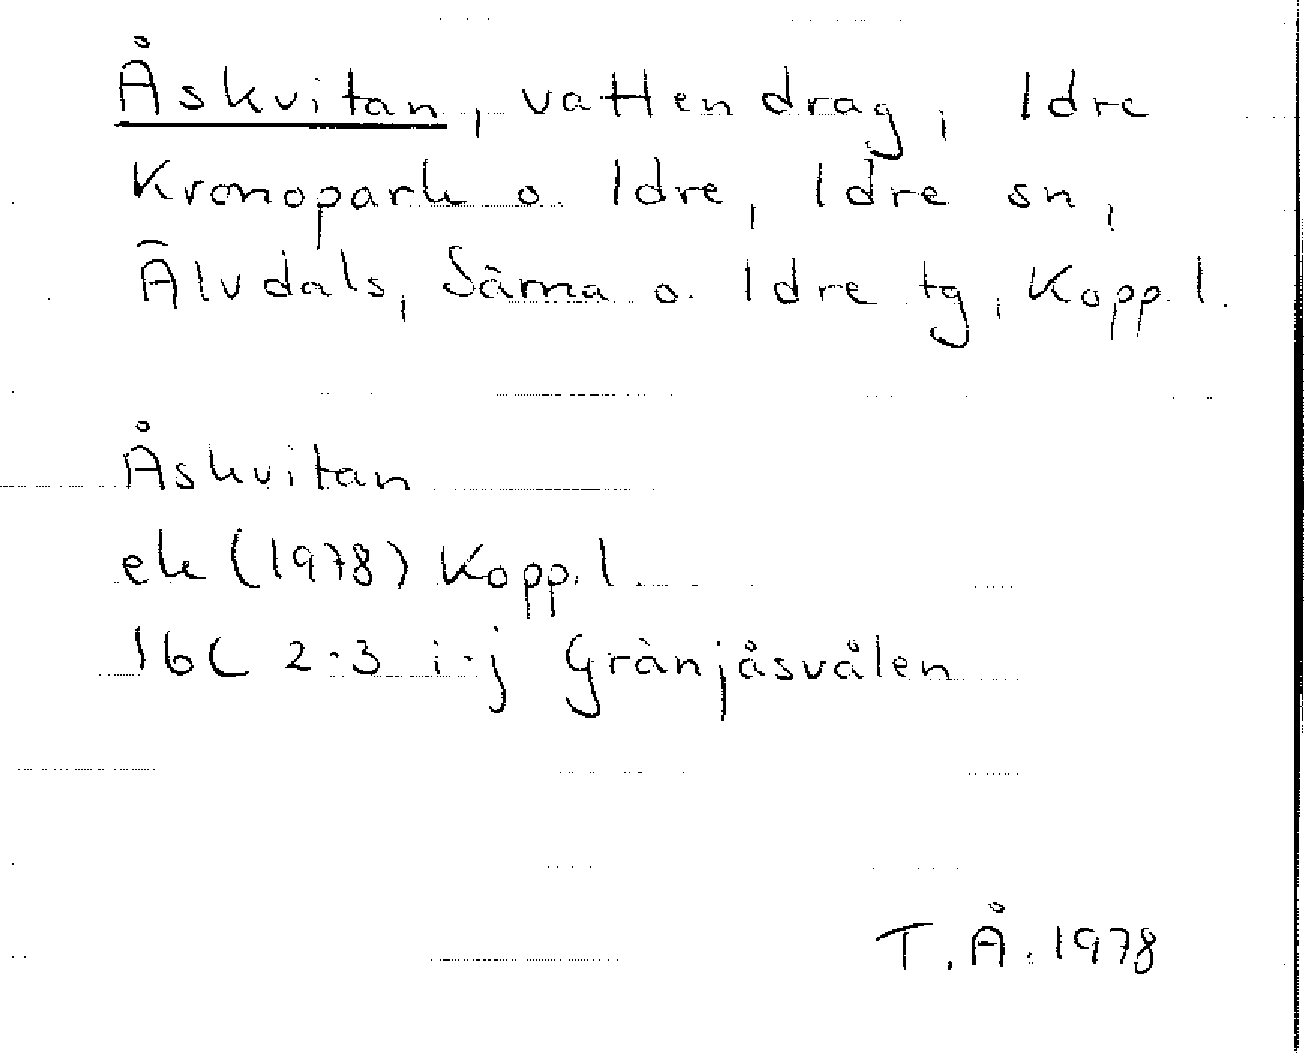 Åskvitan, vattendrag, Idre
Kronopark o. Idre, Idre sn,
Älvdals, Särna o. Idre tg, Kopp.l.
Åskvitan
ek (1978) Kopp.l.
16C 2-3 i-j Gränjåsvålen
T.Å. 1978